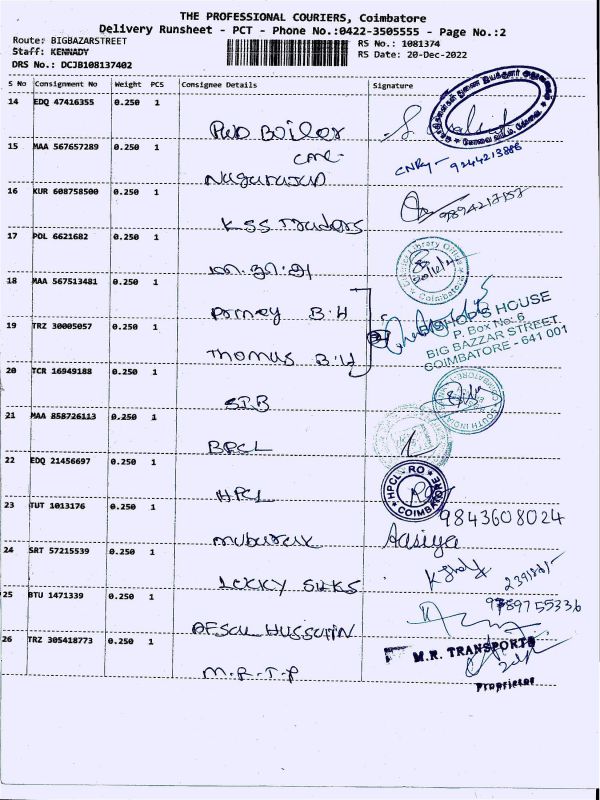 THE PROFESSIONAL COURIERS, Coimbatore
Delivery Runsheet - PCT - Phone No.:0422-3505555 - Page No.:2
Route: BIGBAZARSTREET
RS No.: 1081374
Staff: KENNADY
RS Date: 20-Dec-2022
DRS No.: DCJB108137402
S No Consignment No Weight PCS Consignee Details Signature
14 EDQ 47416355 0.250 1
Boiler
15 MAA 567657289 0.250 1
9244213886
Nagarajan
16 KUR 608758500 0.250 1
9894217157
KSS Traders
17 POL 6621682 0.250 1
District Library Office
Coimbatore
18 MAA 567513481 0.250 1
B.H
BISHOP'S HOUSE
P. Box No: 6
BIG BAZZAR STREET,
COIMBATORE - 641 001
19 TRZ 30005057 0.250 1
Thomas B.H
20 TCR 16949188 0.250 1
SIB
21 MAA 858726113 0.250 1
BPCL
22 EDQ 21456697 0.250 1
HPCL
HPCL - RO
COIMBATORE
23 TUT 1013176 0.250 1
9843608024
Mubarak Aasiya
24 SRT 57215539 0.250 1
LEKKY SILKS
25 BTU 1471339 0.250 1
9789755336
AFSAL HUSSAIN
26 TRZ 305418773 0.250 1
M.R. TRANSPORTS
M.R.T.P
Proprietor